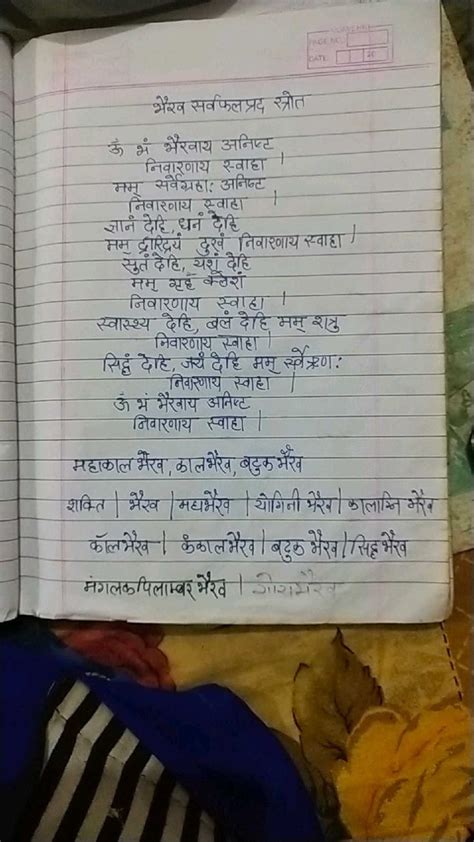 PAGE NO.
DATE:
भैरव सर्वफलप्रद स्त्रोत
ॐ भं भैरवाय अनिष्ट
निवारणाय स्वाहा |
मम् सर्वेग्रहा: अनिष्ट
निवारणाय स्वाहा |
ज्ञानं देहि, धनं देहि
मम् द्वारिद्रयं दुखं निवारणाय स्वाहा |
सुतं देहि, यशं देहि
मम् गृहं क्लेशं
निवारणाय स्वाहा |
स्वास्थ्य देहि, बलं देहि मम् शत्रु
निवारणाय स्वाहा |
सिद्धं देहि, जयं देहि मम् सर्वेऋण:
निवारणाय स्वाहा |
ॐ भं भैरवाय अनिष्ट
निवारणाय स्वाहा |
महाकाल भैरव, काल भैरव, बटुक भैरव
शक्ति | भैरव | मद्यभैरव | योगिनी भैरव | कालाग्नि भैरव
कॉल भैरव | कंकाल भैरव | बटुक भैरव | सिद्ध भैरव
मंगलकपिलाम्बर भैरव |